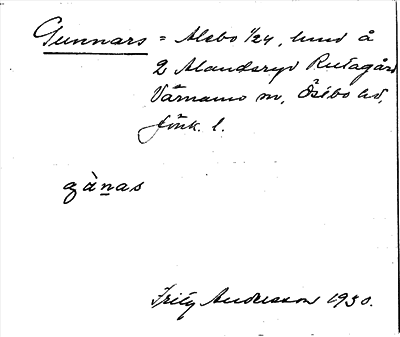 Gunnars = Alebo 1/24, hmd å
2 Alandsryd Rutagård
Värnamo sn, Östbo hd,
Jönk. l.
gànas
Fritz Andersson 1930.